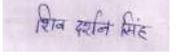 शिव दर्शन सिंह